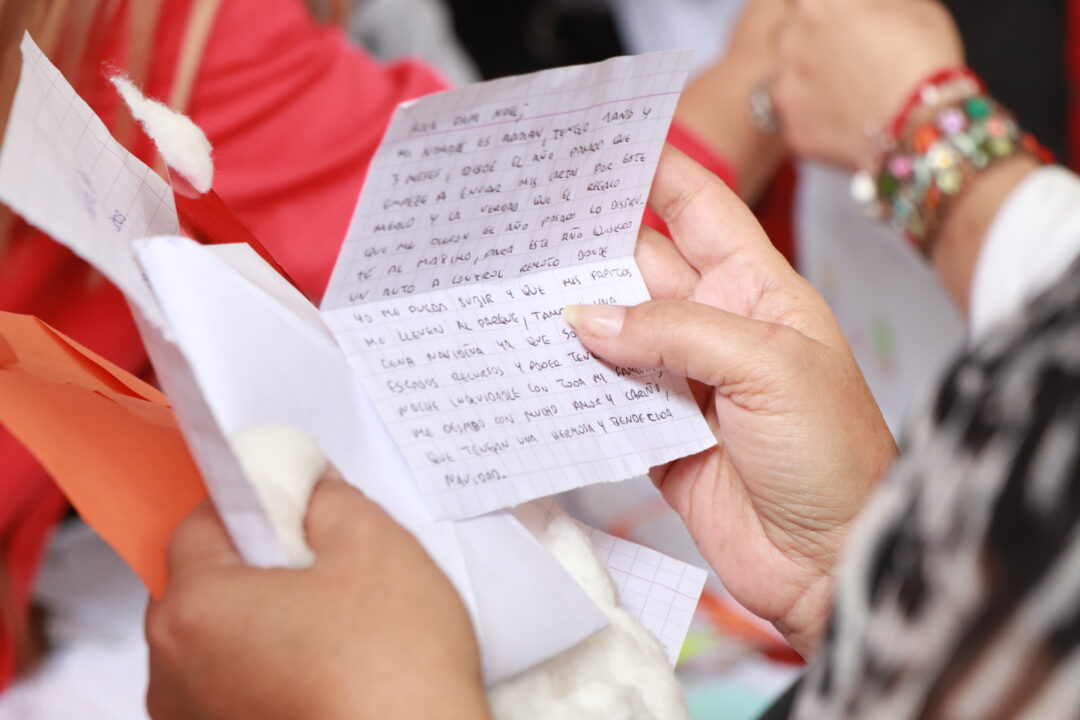 HOLA PAPA NOEL;
MI NOMBRE ES ADRIAN, TENGO 1 AÑO Y
3 MESES, DESDE EL AÑO PASADO QUE
EMPEZE A ENVIAR MIS CARTAS POR ESTE
MEDIO Y LA VERDAD QUE EL REGALO
QUE ME DIERON EL AÑO PASADO LO DISFRU-
TÉ AL MAXIMO, PARA ESTE AÑO QUISIERO
UN AUTO A CONTROL REMOTO DONDE
YO ME PUEDA SUBIR Y QUE MIS PAPITOS
ME LLEVEN AL PARQUE, UNA
CENA NAVIDEÑA YA QUE
ESCASOS RECURSOS Y PODER
NOCHE INOLVIDABLE CON TODA MI FAMILIA,
ME DESPIDO CON MUCHO AMOR Y CARIÑO,
QUE TENGAN UNA HERMOSA Y BENDECIDA
NAVIDAD.